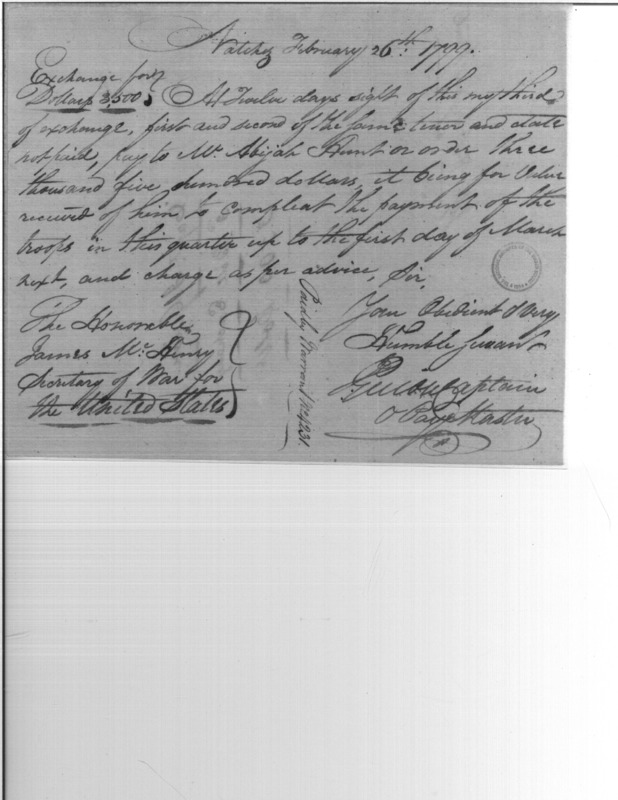 Natchez February 26th. 1799.
Exchange for
Dollars 3,500 At Twelve days sight of this my third
of exchange, first and second of the same tenor and date
not paid, pay to Mr. Abijah Hunt or order three
thousand five hundred dollars, it being for Value
received of him to compleat the payment of the
troops in this quarter up to the first day of March
next, and charge as per advice, Sir,
Your Obedient & Very
Humble Servant
Captain
& Pay Master
The Honorable
James Mc. Henry
Secretary of War for
the United States
Paid by Warrant No 4231